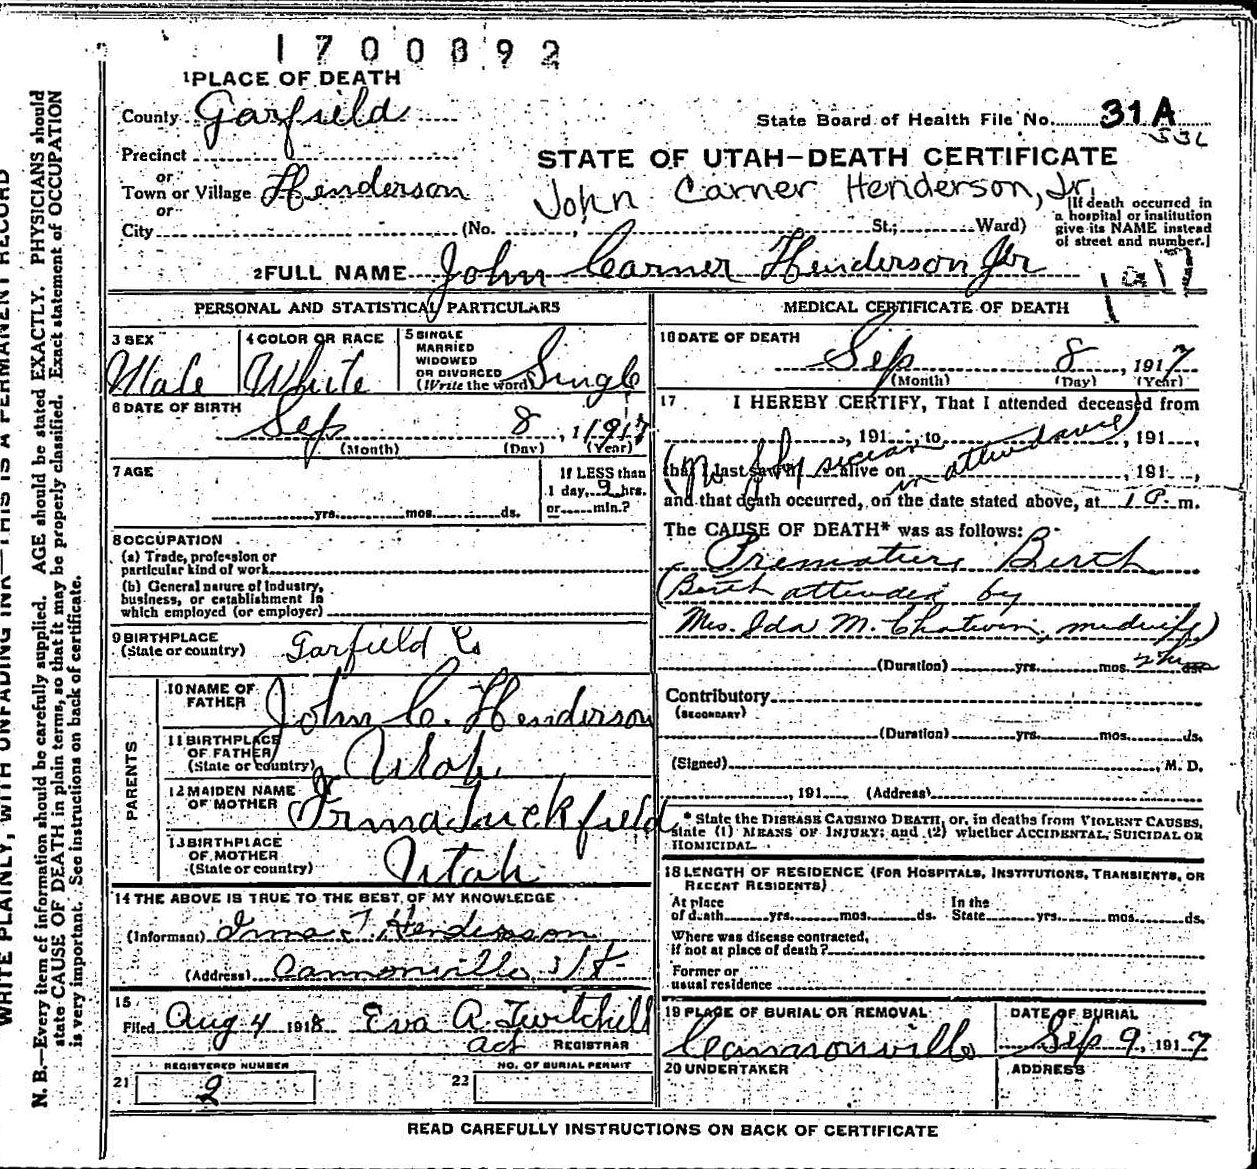 1700892
1 PLACE OF DEATH
County Garfield
State Board of Health File No. 31 A
532
Precinct
or
STATE OF UTAH—DEATH CERTIFICATE
Town or Village Henderson
or
John Carner Henderson, Jr.
City (No. , St.; Ward)
[If death occurred in
a hospital or institution
give its NAME instead
of street and number.]
2 FULL NAME John Carner Henderson Jr
1917
PERSONAL AND STATISTICAL PARTICULARS
3 SEX Male
4 COLOR OR RACE White
5 SINGLE
MARRIED
WIDOWED
OR DIVORCED
(Write the word) Single
6 DATE OF BIRTH
Sep 8, 1917
(Month) (Day) (Year)
7 AGE
If LESS than
1 day, 2 hrs.
yrs. mos. ds. or min.?
8 OCCUPATION
(a) Trade, profession or
particular kind of work
(b) General nature of Industry,
business, or establishment in
which employed (or employer)
9 BIRTHPLACE
(State or country) Garfield Co
PARENTS
10 NAME OF
FATHER John C. Henderson
11 BIRTHPLACE
OF FATHER
(State or country) Utah
12 MAIDEN NAME
OF MOTHER Irma Tuckfield
13 BIRTHPLACE
OF MOTHER
(State or country) Utah
14 THE ABOVE IS TRUE TO THE BEST OF MY KNOWLEDGE
(Informant) Irma T. Henderson
(Address) Cannonville
15
Filed Aug 4 1918 Eva A. Twitchell
act REGISTRAR
REGISTERED NUMBER
21 2
NO. OF BURIAL PERMIT
22
MEDICAL CERTIFICATE OF DEATH
16 DATE OF DEATH
Sep 8, 1917
(Month) (Day) (Year)
17 I HEREBY CERTIFY, That I attended deceased from
, 191 , to , 191 ,
(No Physician in attendance)
that I last saw h alive on , 191 ,
and that death occurred, on the date stated above, at 1 P. m.
The CAUSE OF DEATH* was as follows:
Premature Birth
(Birth attended by
Mrs. Ida M. Chatwin, midwife)
(Duration) yrs. mos. 2 hrs ds.
Contributory
(SECONDARY)
(Duration) yrs. mos. ds.
(Signed) , M. D.
, 191 (Address)
* State the DISEASE CAUSING DEATH, or, in deaths from VIOLENT CAUSES,
state (1) MEANS OF INJURY; and (2) whether ACCIDENTAL, SUICIDAL OR
HOMICIDAL.
18 LENGTH OF RESIDENCE (FOR HOSPITALS, INSTITUTIONS, TRANSIENTS, OR
RECENT RESIDENTS)
At place In the
of death yrs. mos. ds. State yrs. mos. ds.
Where was disease contracted,
if not at place of death?
Former or
usual residence
19 PLACE OF BURIAL OR REMOVAL
Cannonville
DATE OF BURIAL
Sep 9, 1917
20 UNDERTAKER
ADDRESS
READ CAREFULLY INSTRUCTIONS ON BACK OF CERTIFICATE
WRITE PLAINLY, WITH UNFADING INK—THIS IS A PERMANENT RECORD
N. B.—Every item of information should be carefully supplied. AGE should be stated EXACTLY. PHYSICIANS should
state CAUSE OF DEATH in plain terms, so that it may be properly classified. Exact statement of OCCUPATION
is very important. See instructions on back of certificate.